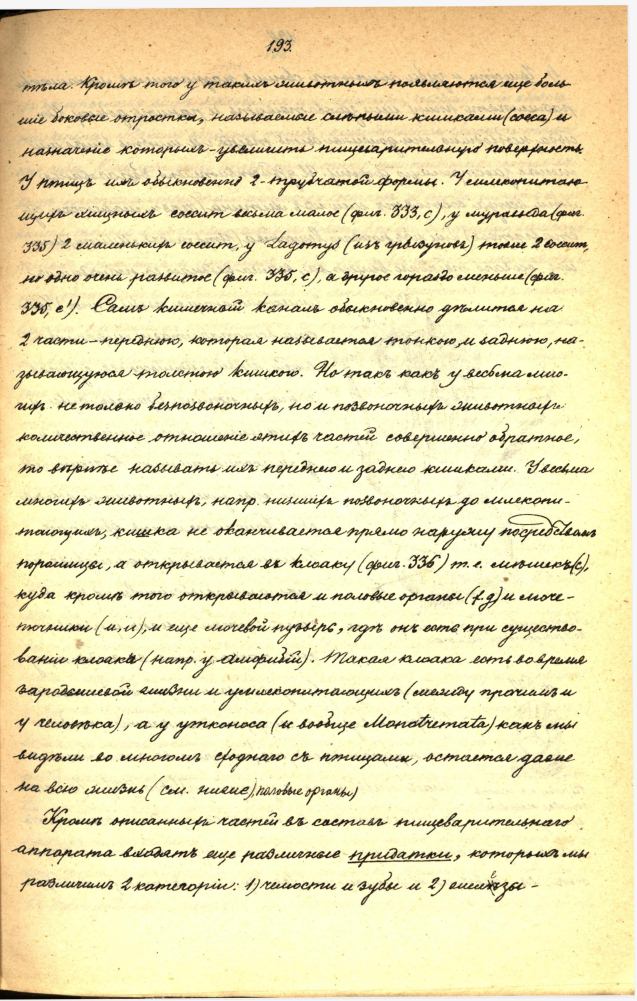 193.
тѣла. Кромѣ того у такихъ животныхъ появляются еще боль-
шіе боковые отростки, называемые слѣпыми кишками (coeca) и
назначеніе которыхъ - увеличить пищеварительную поверхность.
У птицъ ихъ обыкновенно 2 - трубчатой формы. У млекопитаю-
щихъ хищныхъ coecum весьма малое (фиг. 333, c), у муравьѣда (фиг.
335) 2 маленькихъ coecum, у Lagomys (изъ грызуновъ) тоже 2 coecum,
но одно очень развитое (фиг. 335, c), а другое гораздо меньше (фиг.
335, c'). Самъ кишечный каналъ обыкновенно дѣлится на
2 части - переднюю, которая называется тонкою, и заднюю, на-
зывающуюся толстою кишкою. Но такъ какъ у весьма мно-
гихъ не только безпозвоночныхъ, но и позвоночныхъ животныхъ
количественное отношеніе этихъ частей совершенно обратное,
то вѣрнѣе называть ихъ переднею и заднею кишками. У весьма
многихъ животныхъ, напр. низшихъ позвоночныхъ до млекопи-
тающихъ, кишка не оканчивается прямо наружу посредствомъ
порошицы, а открывается въ клоаку (фиг. 336) т.е. мѣшекъ (c),
куда кромѣ того открываются и половые органы (f. g) и моче-
точники (и, и), и еще мочевой пузырь, гдѣ онъ есть при существо-
ваніи клоаки (напр. у амфибій). Такая клоака есть во время
зародышевой жизни и у млекопитающихъ (между прочимъ и
у человѣка), а у утконоса (и вообще Monotremata) какъ мы
видѣли во многомъ сходнаго съ птицами, остается даже
на всю жизнь (см. ниже, половые органы)
Кромѣ описанныхъ частей въ составъ пищеварительнаго
аппарата входятъ еще различные придатки, которыхъ мы
различимъ 2 категоріи: 1) челюсти и зубы и 2) желёзы -